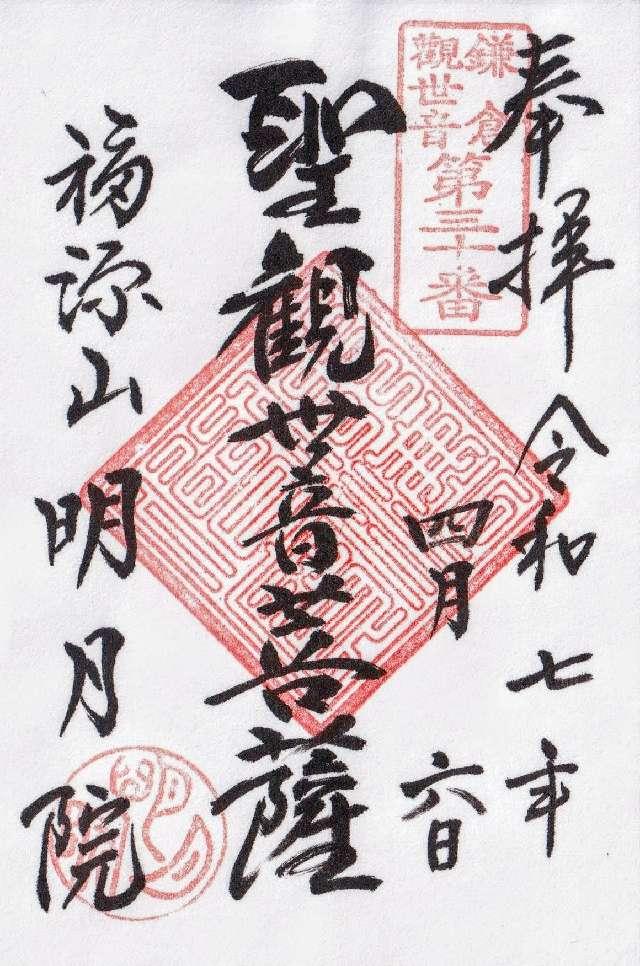 奉拝
令和七年
四月六日
鎌倉
觀世音
第三十番
聖觀世音菩薩
福源山
明月院